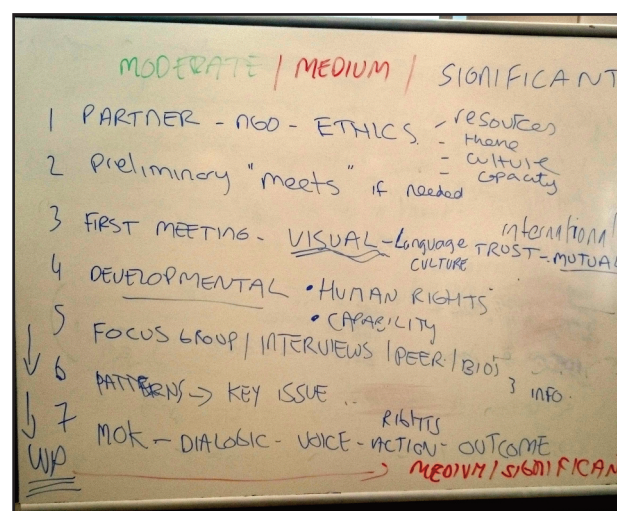 MODERATE / MEDIUM / SIGNIFICANT
1 PARTNER - NGO - ETHICS - resources
- theme
- culture
- capacity
2 Preliminary "meets" if needed
3 FIRST MEETING - VISUAL - Language international
CULTURE TRUST - MUTUAL
4 DEVELOPMENTAL • HUMAN RIGHTS
• CAPABILITY
5 FOCUS GROUP / INTERVIEWS / PEER / BIOS
6 PATTERNS → KEY ISSUE .. } INFO
RIGHTS
7 MOK - DIALOGIC - VOICE - ACTION - OUTCOME
WP → MEDIUM / SIGNIFICAN